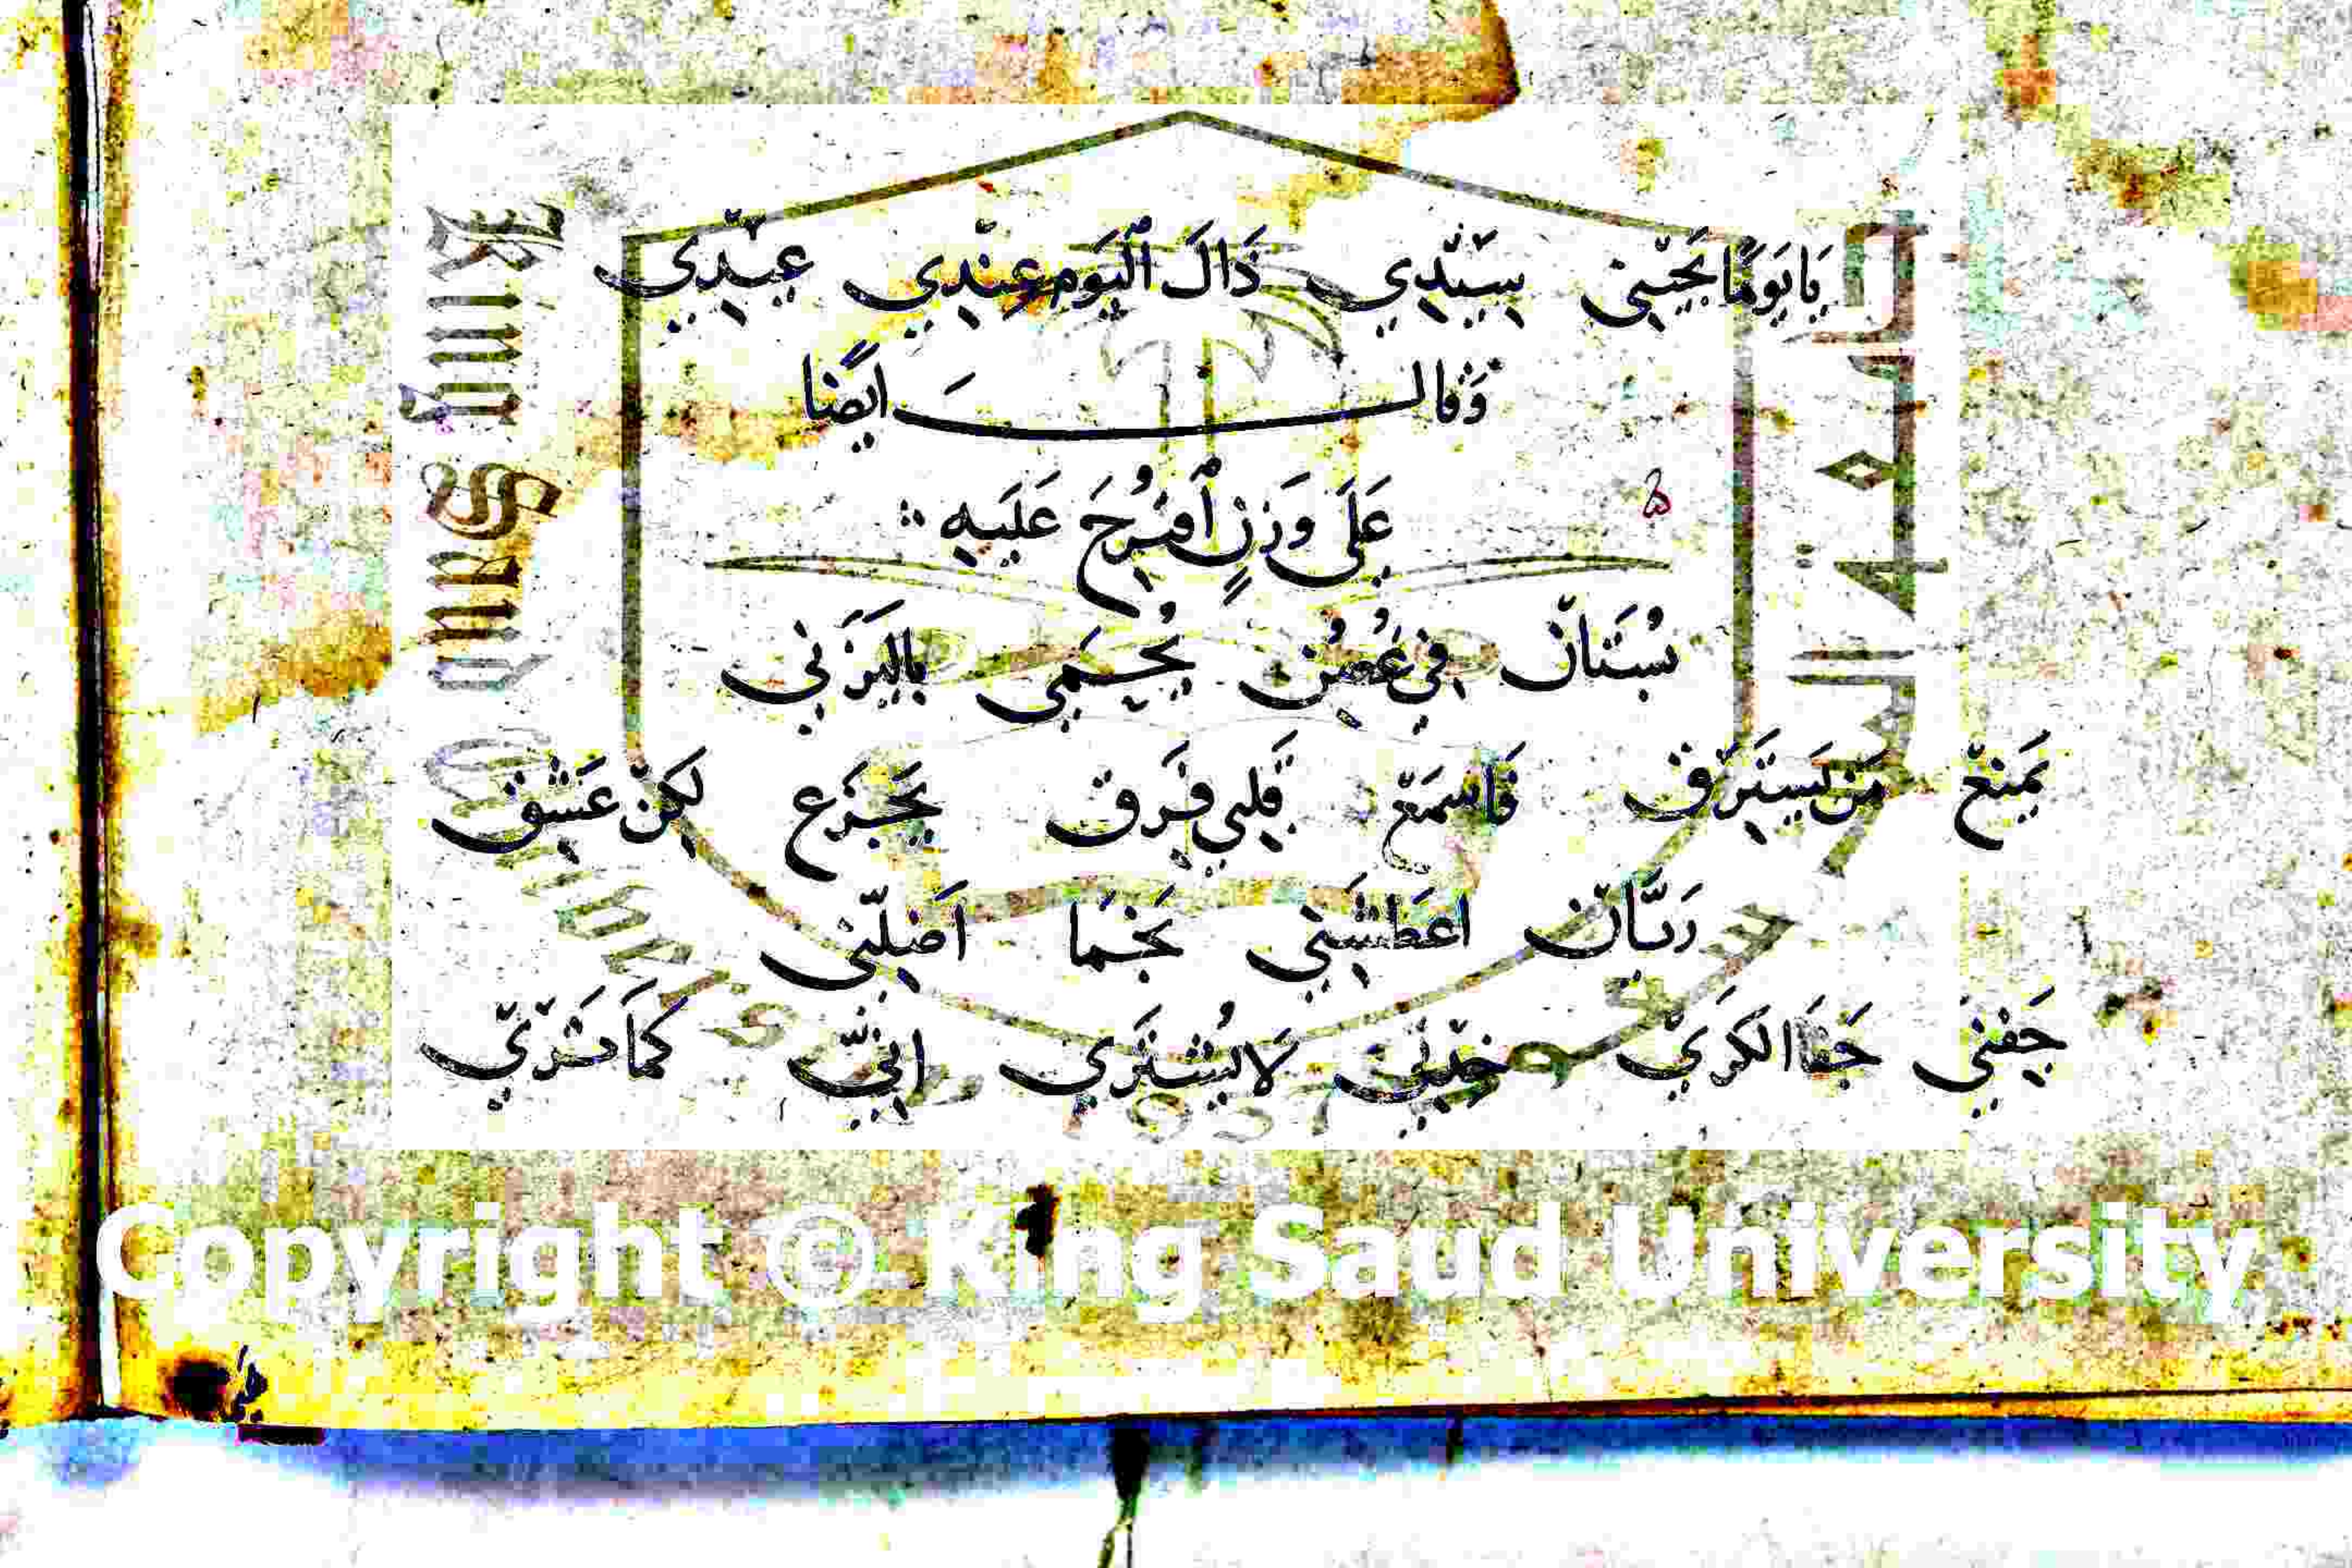 يَا يَومًا يَجِيْنِي بِسَيِّدِي ذَالَ ٱليَوم عِنْدِي عِيْدِي
وَقَالَ ايضًا
عَلَى وَزنِ ٱفْرُحَ عَلَيهِ
بُسْتَانْ فِي غُصُنِ يُحْمَى بِاليَزَنِي
يَمنَعْ مَن يَستَرِق فَاسْمَعْ قَلبِي فَرَق يَجزَع لكِنْ عَشِق
رَيَّانْ اعطَشَنِي نَجْمَا اَضَلّنِي
جَفنِي جَفَا الكرَي خِدنِي لَا يُشتَرَي انِيّ كمَا تَرَي
Copyright © King Saud University
King Saud University
1957